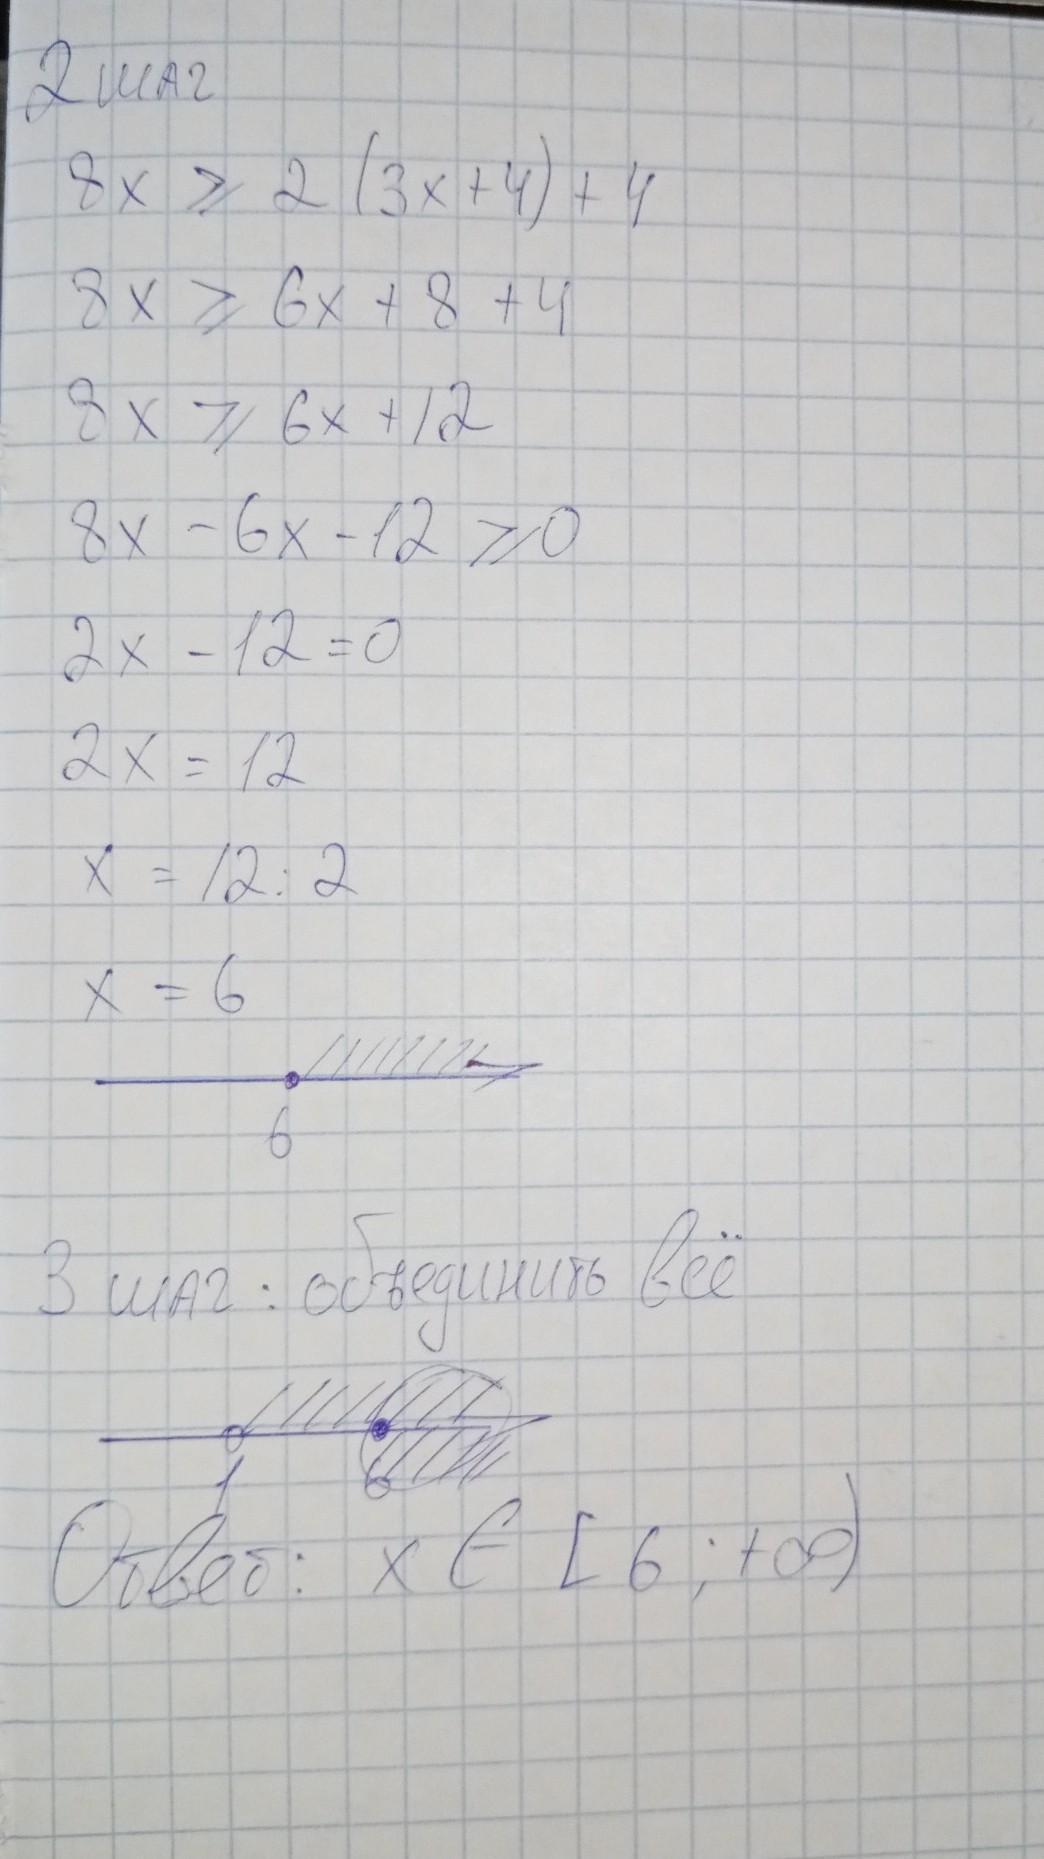 2 шаг
8x ⩾ 2(3x+4)+4
8x ⩾ 6x + 8 + 4
8x ⩾ 6x + 12
8x - 6x - 12 ⩾ 0
2x - 12 = 0
2x = 12
x = 12 : 2
x = 6
6
3 шаг: объединить всё
1 6
Ответ: x ∈ [6 ; +∞)